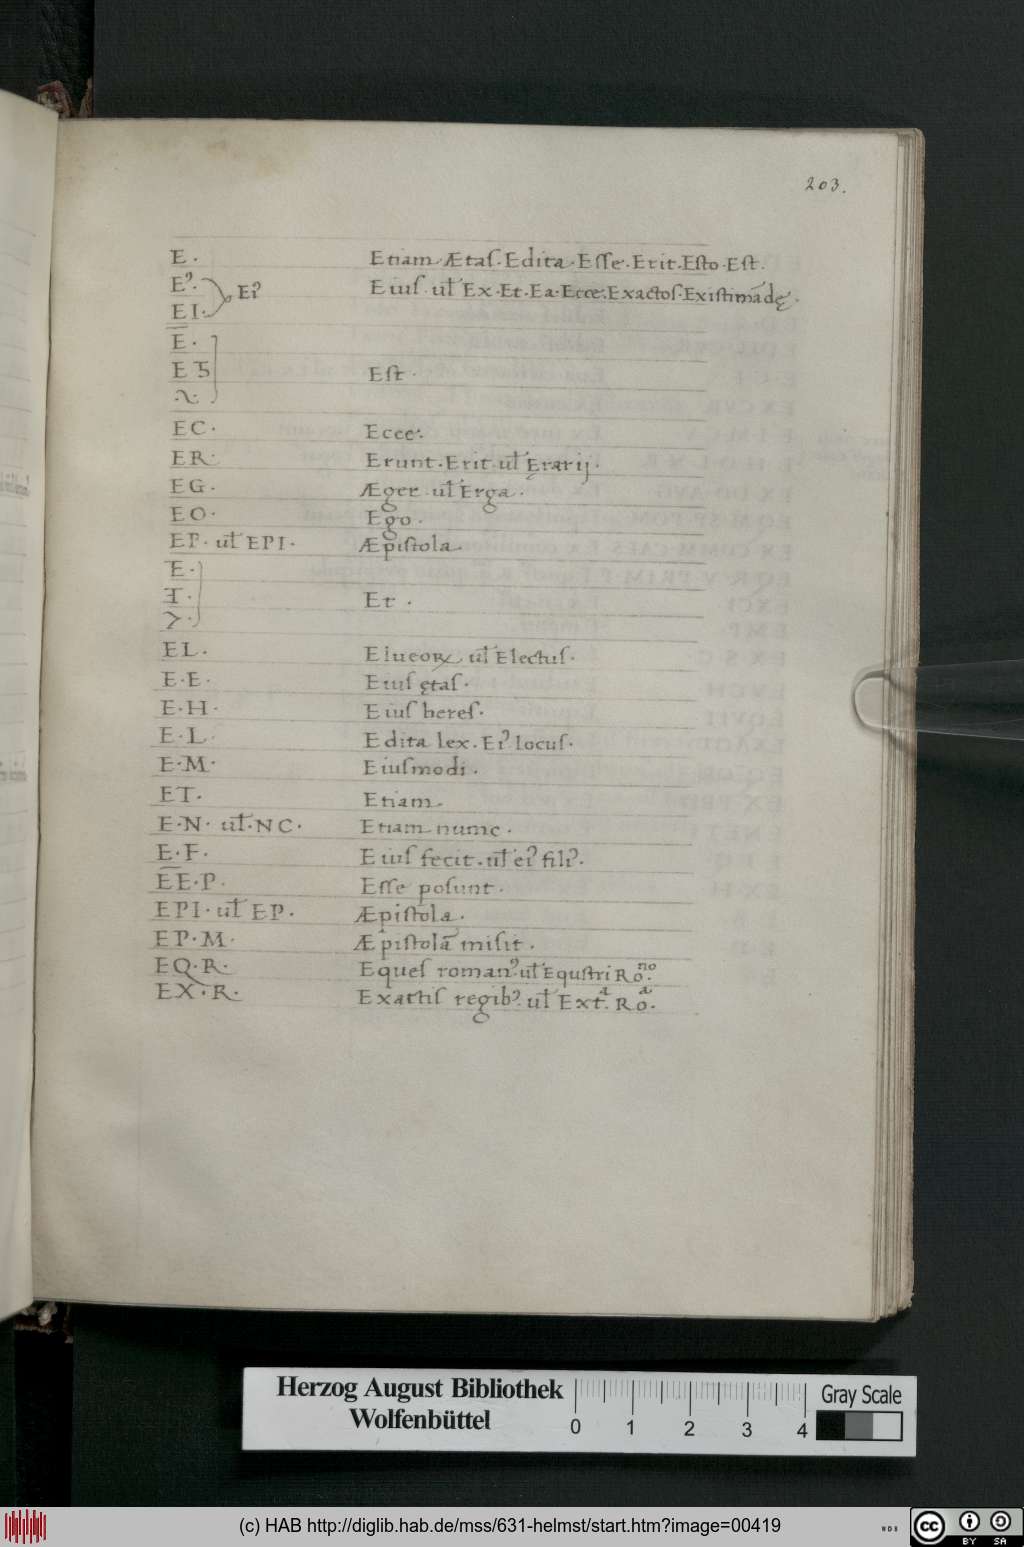 203.
E. Etiam. Ætas. Edita. Esse. Erit. Esto. Est.
Eꝰ. Eiꝰ Eius. ul̄ Ex. Et. Ea. Ecce. Exactos. Existimādę.
EI.
Ē.
E Est.
EC. Ecce.
ER. Erunt. Erit. ul̄ Ęrarij.
EG. Æger. ul̄ Erga.
EO. Ego.
EP. ul̄ EPI. Æpistola.
E.
Et.
EL. ul̄ Electus.
E·E. Eius ętas.
E·H. Eius heres.
E·L. Edita lex. Eiꝰ locus.
E·M. Eiusmodi.
ET. Etiam.
E·N. ul̄. NC. Etiam nunc.
E·F. Eius fecit. ul̄ eiꝰ filiꝰ.
ĒE·P. Esse posunt.
EPI. ul̄ EP. Æpistola.
EP·M. Æpistolā misit.
EQ·R. Eques romanꝰ. ul̄ Equstri Ro.ⁿᵒ
EX·R. Exactis regibꝰ. ul̄ Ext.ᵃ Ro.ᵃ
Herzog August Bibliothek
Wolfenbüttel
0 1 2 3 4
Gray Scale
(c) HAB http://diglib.hab.de/mss/631-helmst/start.htm?image=00419
WDB
cc BY SA